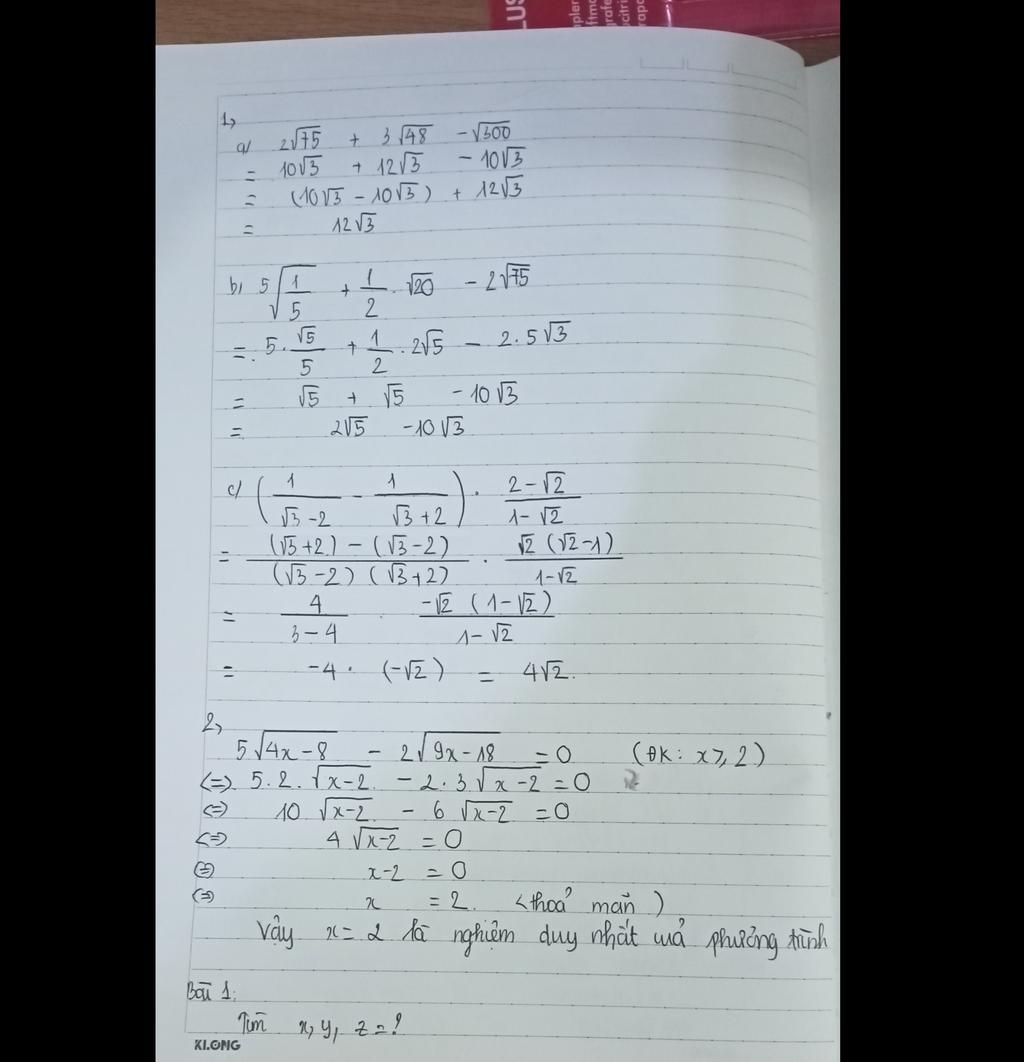 LUS
1,
a/ 2√75 + 3√48 - √300
= 10√3 + 12√3 - 10√3
= (10√3 - 10√3) + 12√3
= 12√3
b, 5√(1/5) + 1/2 . √20 - 2√75
= 5 . √5/5 + 1/2 . 2√5 - 2.5√3
= √5 + √5 - 10√3
= 2√5 - 10√3
c/ (1/(√3-2) - 1/(√3+2)) . (2-√2)/(1-√2)
= ((√3+2) - (√3-2))/((√3-2)(√3+2)) . (√2(√2-1))/(1-√2)
= 4/(3-4) . (-√2(1-√2))/(1-√2)
= -4 . (-√2) = 4√2.
2,
5√(4x-8) - 2√(9x-18) = 0 (ĐK: x ≥ 2)
<=> 5.2.√(x-2) - 2.3√(x-2) = 0
<=> 10√(x-2) - 6√(x-2) = 0
<=> 4√(x-2) = 0
<=> x-2 = 0
<=> x = 2. (thoả mãn)
Vậy x = 2 là nghiệm duy nhất của phương trình
Bài 1:
Tìm x, y, z = ?
KLONG